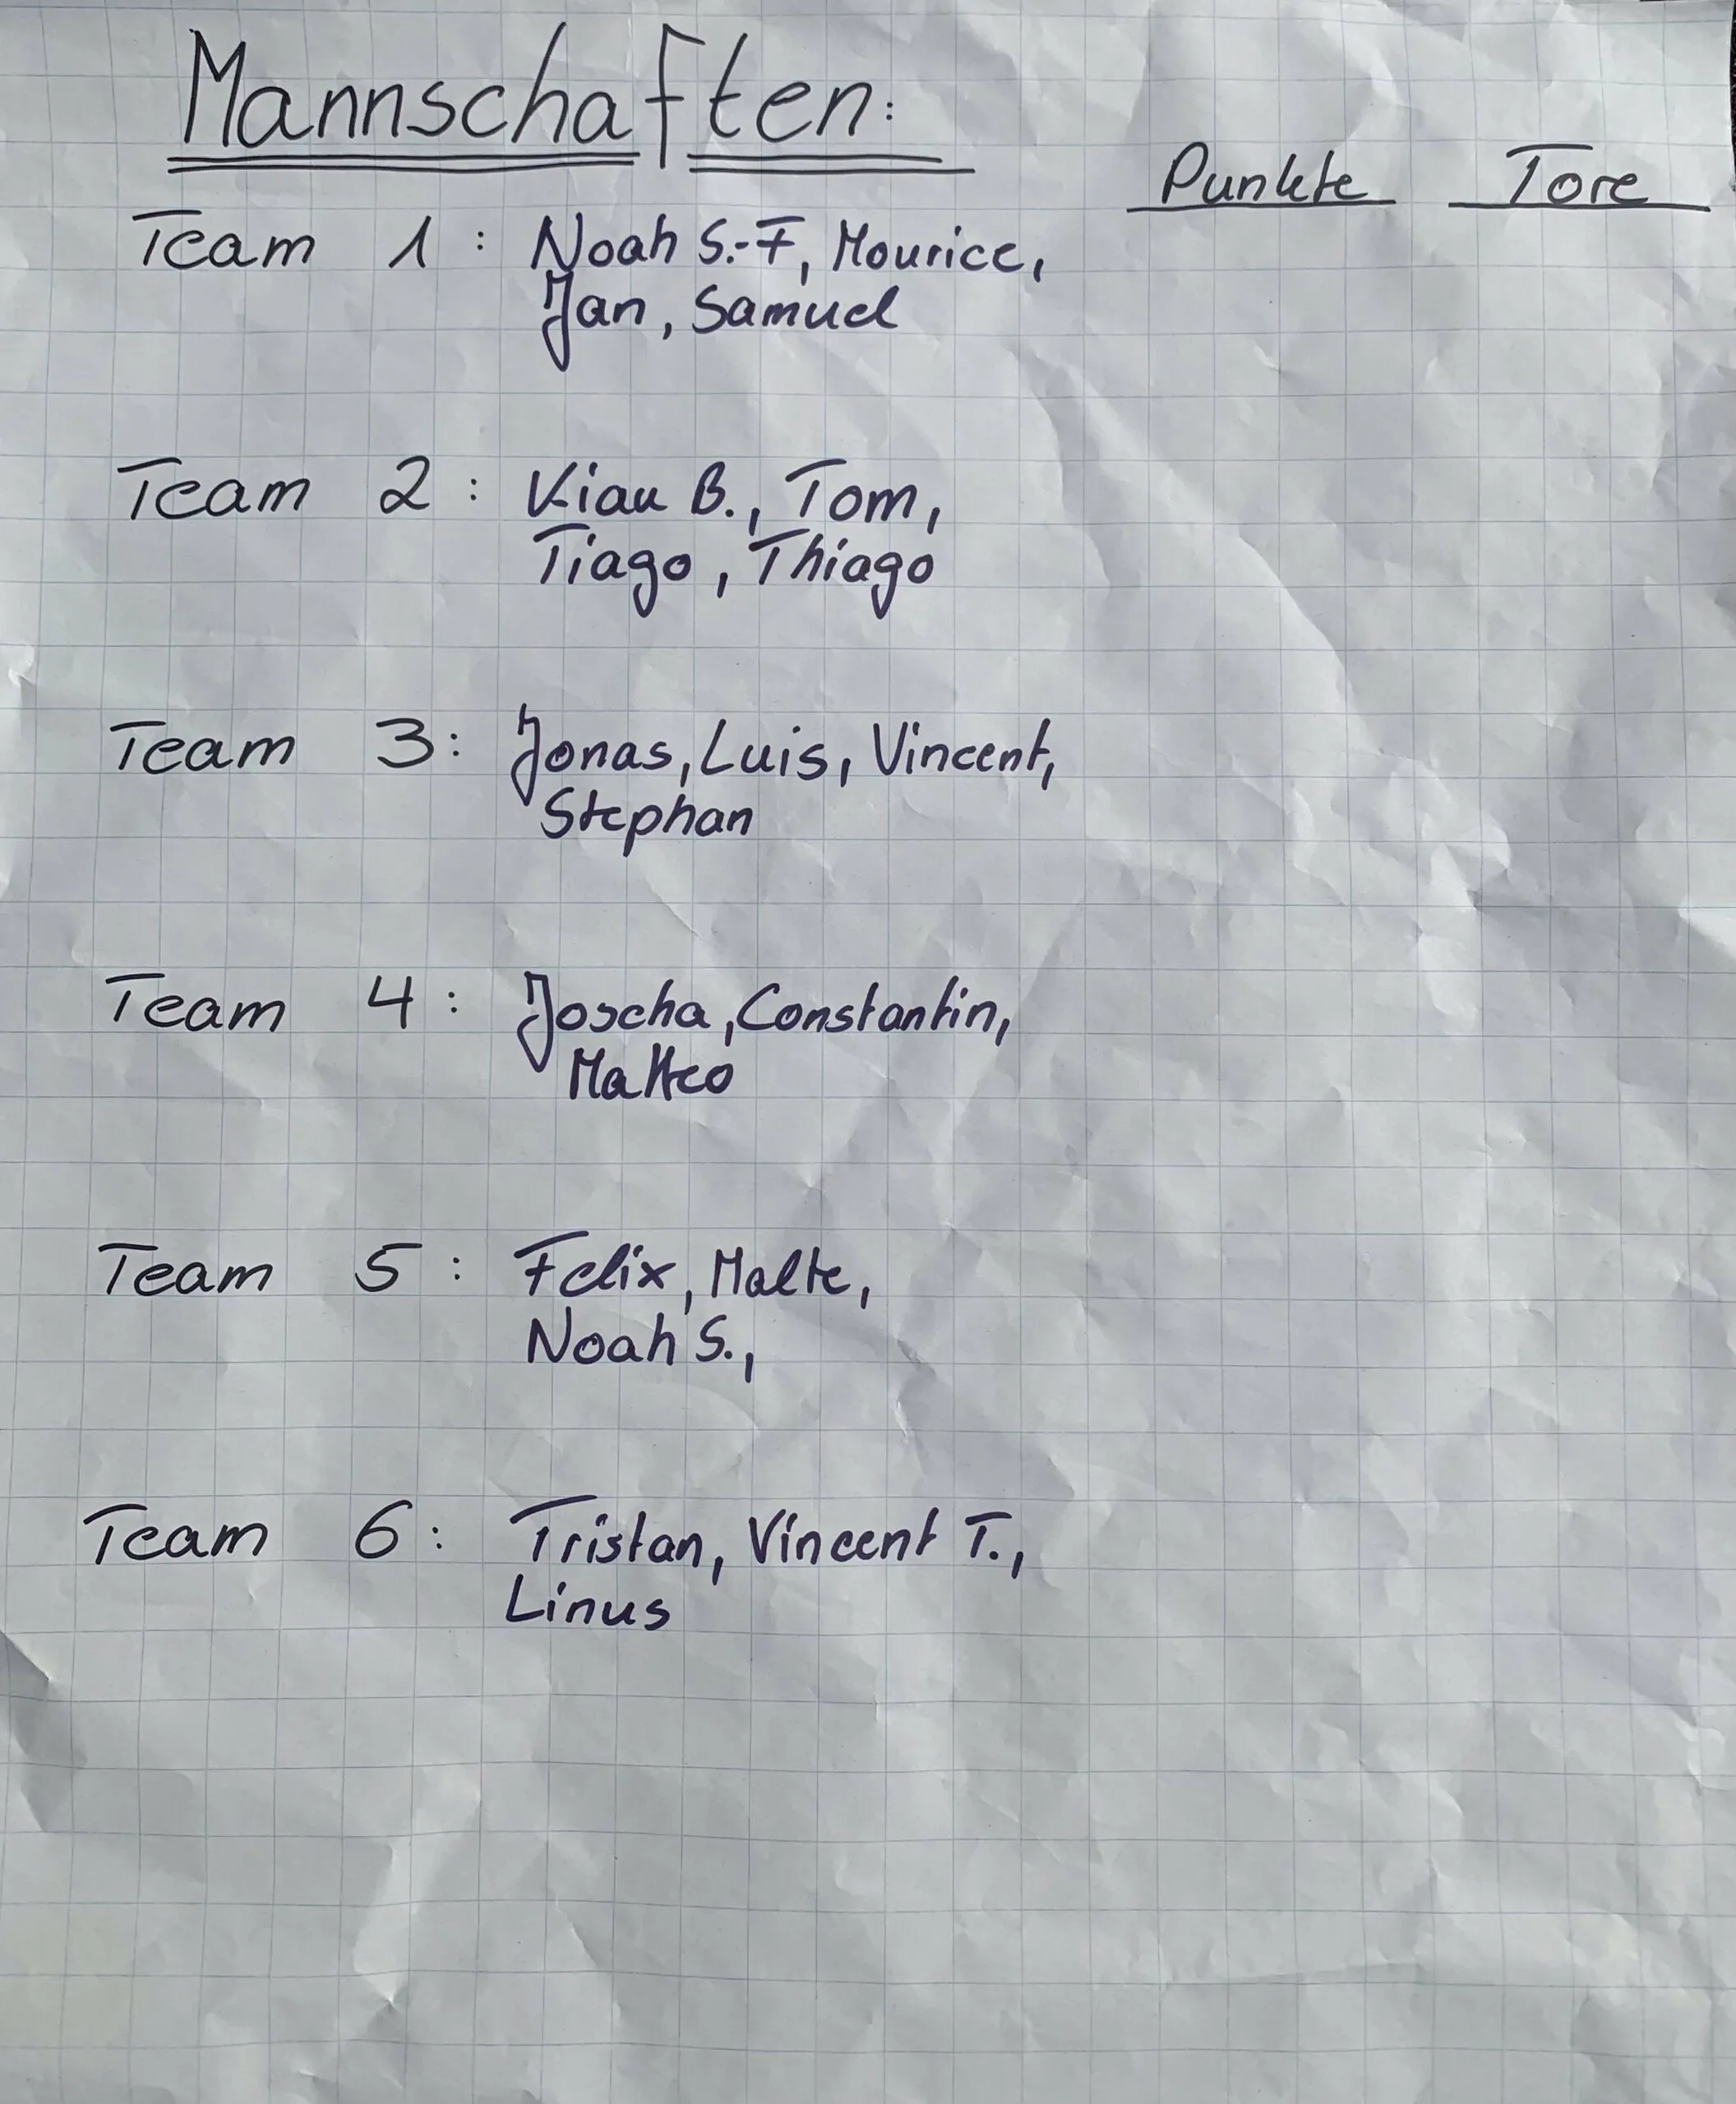 Mannschaften:
Punkte Tore
Team 1: Noah S.-F, Mourice,
Jan, Samuel
Team 2: Kian B., Tom,
Tiago, Thiago
Team 3: Jonas, Luis, Vincent,
Stephan
Team 4: Joscha, Constantin,
Matteo
Team 5: Felix, Malte,
Noah S.,
Team 6: Tristan, Vincent T.,
Linus